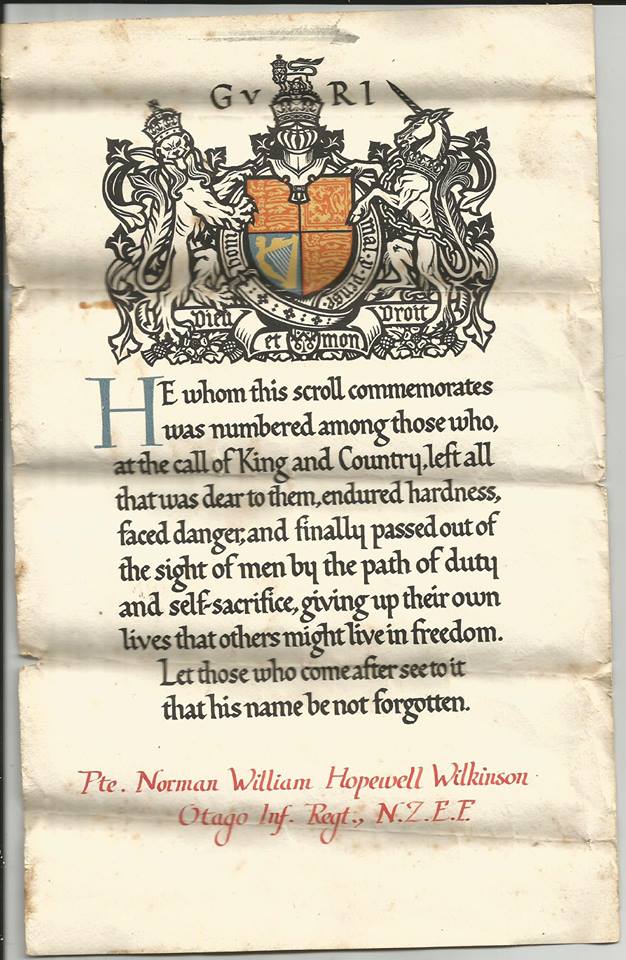 GvRI
Honi
mal y pense
Dieu
Droit
et mon
HE whom this scroll commemorates
was numbered among those who,
at the call of King and Country, left all
that was dear to them, endured hardness,
faced danger, and finally passed out of
the sight of men by the path of duty
and self-sacrifice, giving up their own
lives that others might live in freedom.
Let those who come after see to it
that his name be not forgotten.
Pte. Norman William Hopewell Wilkinson
Otago Inf. Regt., N.Z.E.F.